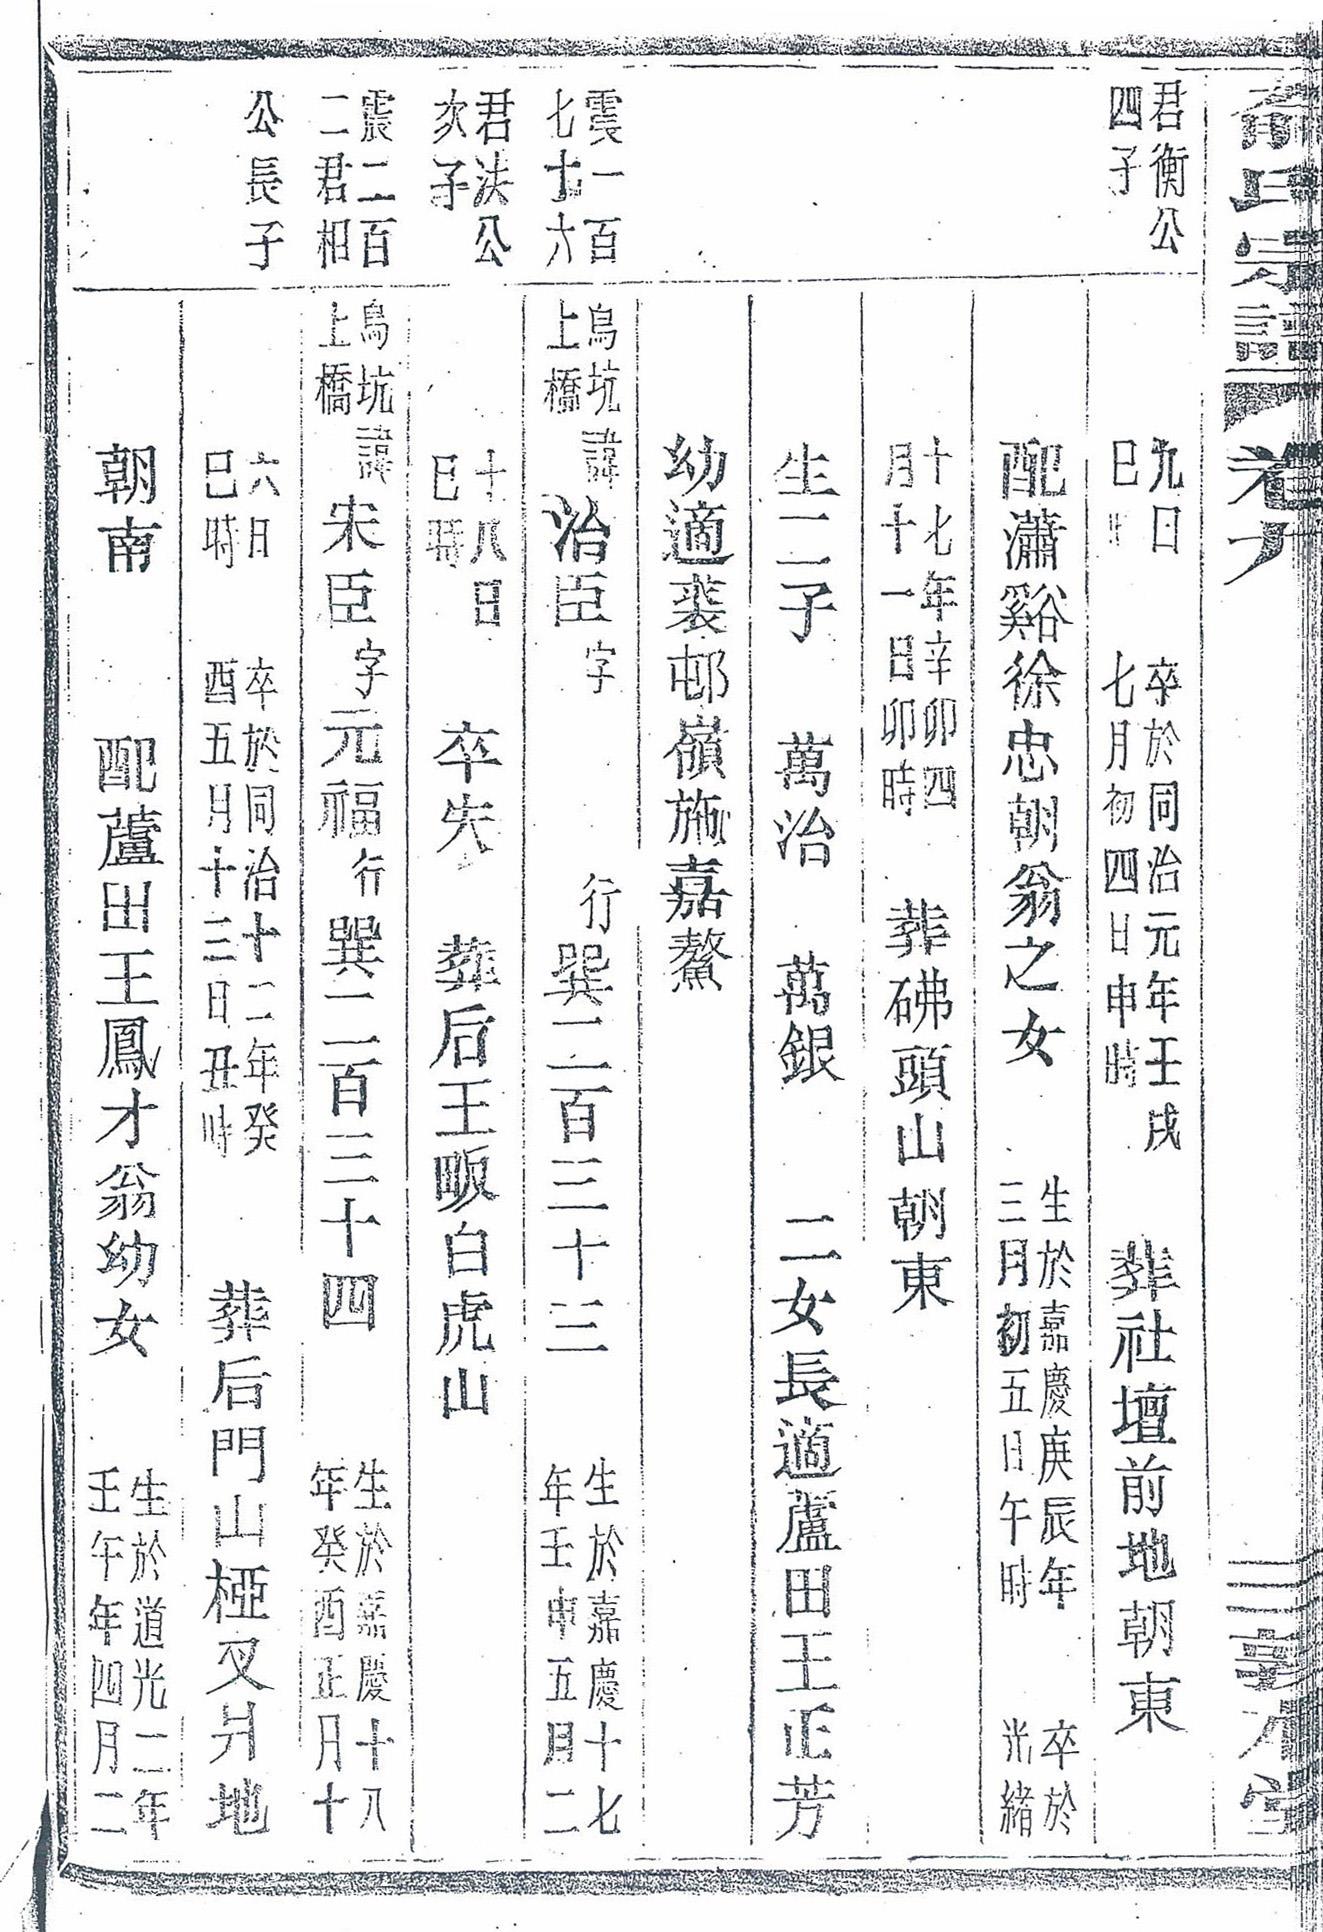 俞氏宗譜 卷九
君衡公
四子
九日
巳時
卒於同治元年壬戌
七月初四日申時
葬社壇前地朝東
配瀟谿徐忠朝翁之女
生於嘉慶庚辰年
三月初五日午時
卒於
光緒
十七年辛卯四
月十一日卯時
葬砩頭山朝東
生二子 萬治 萬銀 二女長適蘆田王正芳
幼適裘邨嶺施嘉鰲
震一百
七十六
君法公
次子
烏坑
上橋
諱治臣字 行巽二百三十三
生於嘉慶十七
年壬申五月二
十八日
巳時
卒失 葬后王畈白虎山
震二百
二君相
公長子
烏坑
上橋
諱宋臣字元福行巽二百三十四
生於嘉慶十八
年癸酉正月十
六日
巳時
卒於同治十二年癸
酉五月十三日丑時
葬后門山椏叉爿地
朝南 配蘆田王鳳才翁幼女
生於道光二年
壬午年四月二